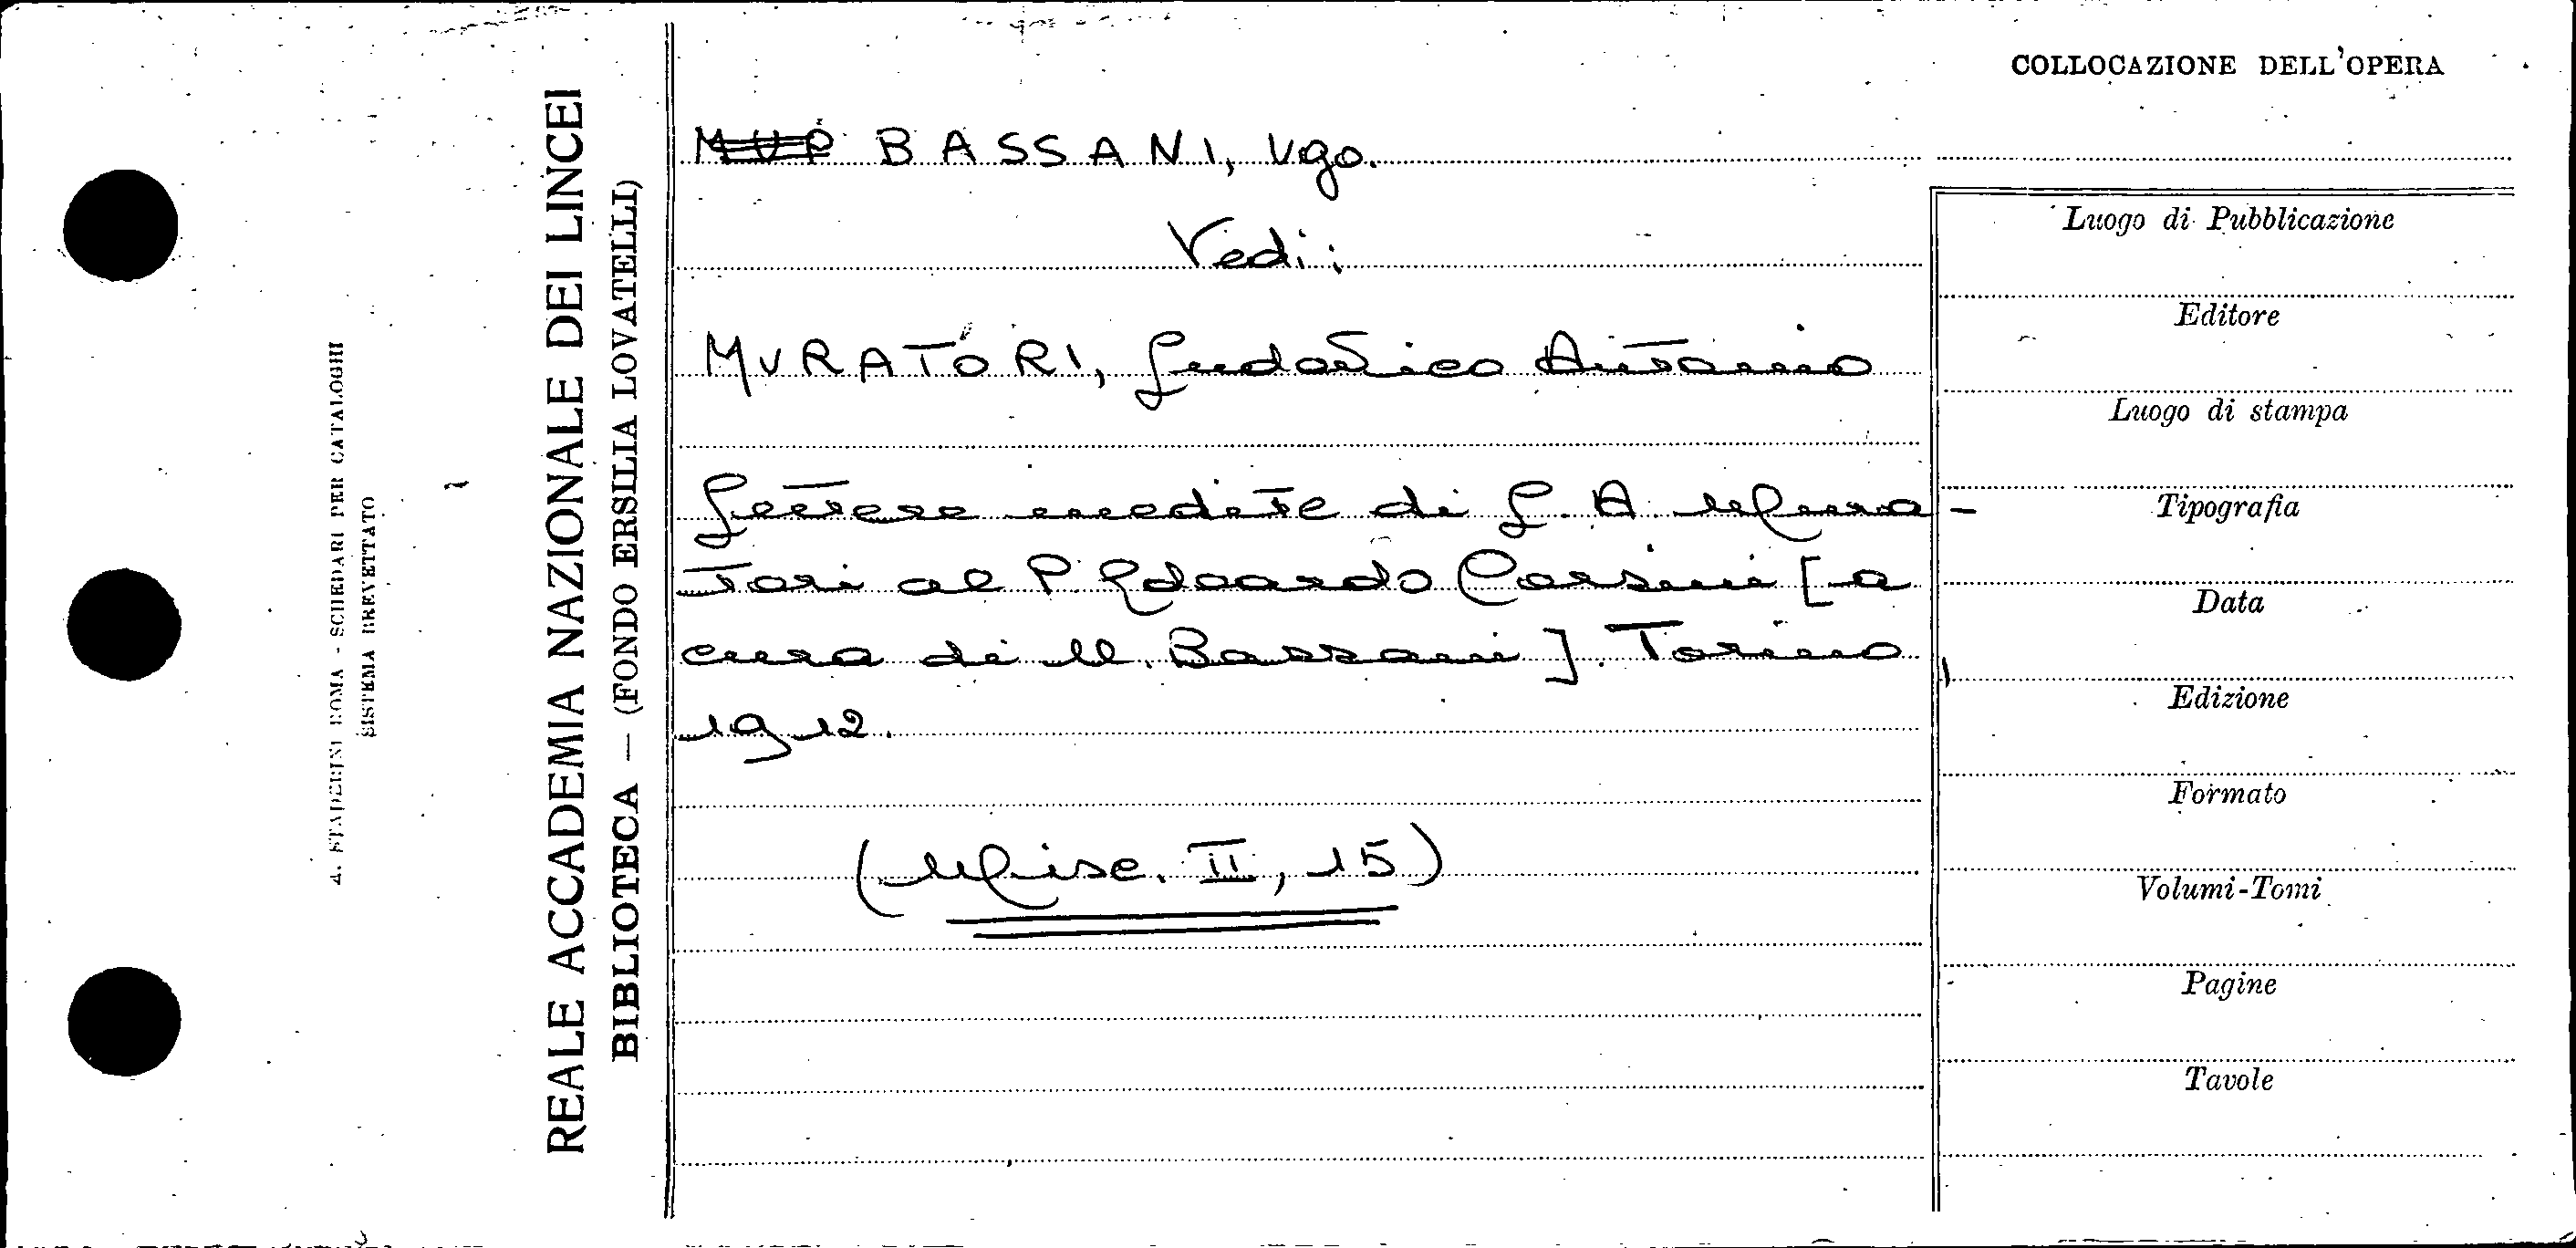 A. STADERINI ROMA - SCHEDARI PER CATALOGHI
SISTEMA BREVETTATO
REALE ACCADEMIA NAZIONALE DEI LINCEI
BIBLIOTECA — (FONDO ERSILIA LOVATELLI)
MUR BASSANI, Ugo.
Vedi:
MURATORI, Ludovico Antonio
Lettere inedite di L. A. Mura-
tori al P. Edoardo Corsini [a
cura di U. Bassani]. Torino,
1912.
(Misc. II, 15)
COLLOCAZIONE DELL'OPERA
Luogo di Pubblicazione
Editore
Luogo di stampa
Tipografia
Data
Edizione
Formato
Volumi-Tomi
Pagine
Tavole